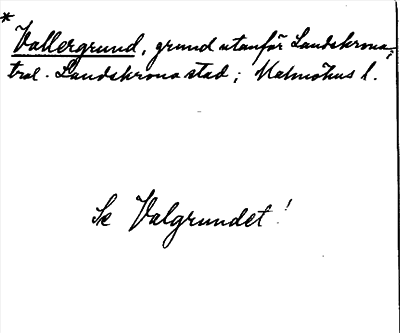 * Vallergrund, grund utanför Landskrona;
tral. Landskrona stad; Malmöhus l.
Se Valgrundet!